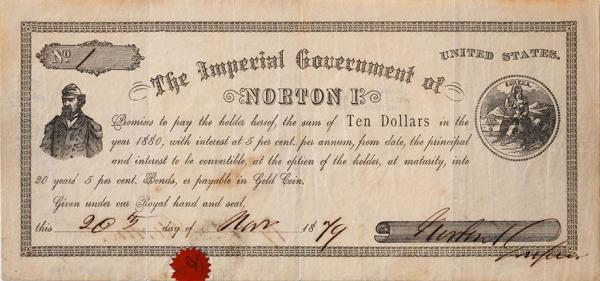 No. 1
UNITED STATES.
The Imperial Government of
NORTON I.
EUREKA
Promises to pay the holder hereof, the sum of Ten Dollars in the
year 1880, with interest at 5 per cent. per annum, from date, the principal
and interest to be convertible, at the option of the holder, at maturity, into
20 years' 5 per cent. Bonds, or payable in Gold Coin.
Given under our Royal hand and seal,
this 20th day of Nov 1879
Norton I